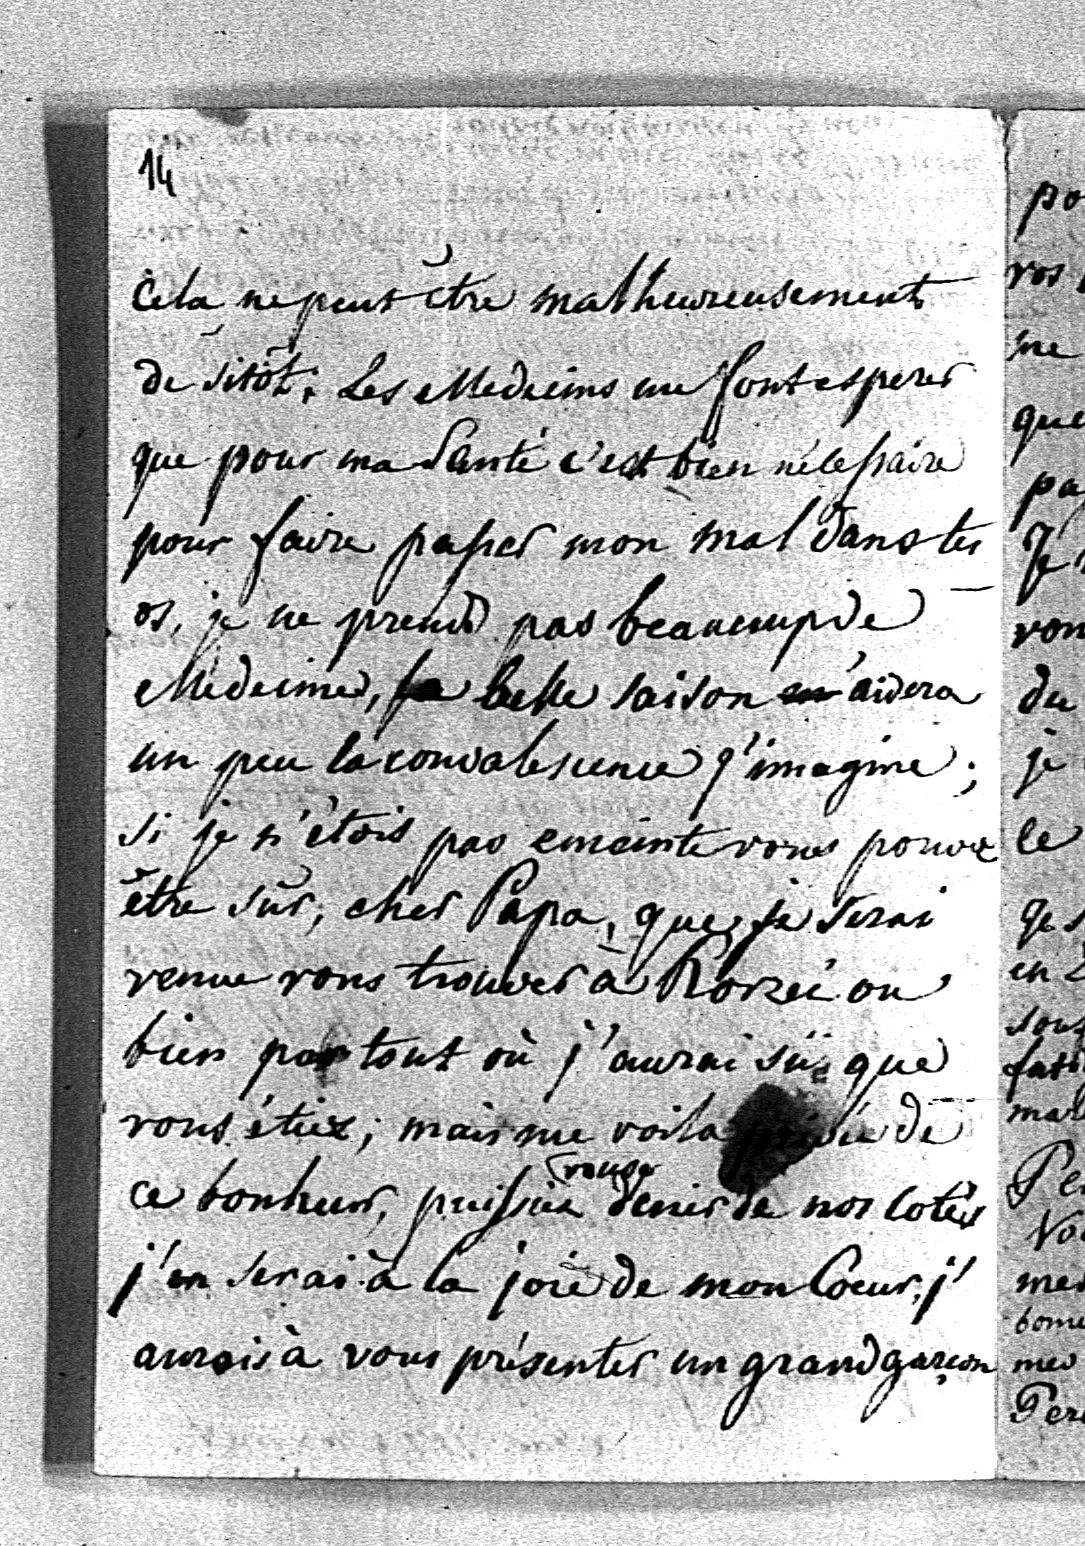 14
Cela ne peut être malheureusement
de sitôt. Les Medecins me font esperer
que pour ma Santé c'est bien nécessaire
pour faire passer mon mal dans les
os, je ne prends pas beaucoup de
Médecines, la belle saison aidera
un peu la convalescence j'imagine;
si je n'étois pas enceinte vous pouvez
être sûr, cher Papa, que je serai
venue vous trouver à Rorzéi ou
bien par tout où j'aurai sü que
vous étiez; mais me voila privée de
ce bonheur, puissiez vous venir de nos cotés
j'en serai à la joie de mon Coeur, j'
aurois à vous présenter un grand garçon
po
vos
me
que
pa
Je
vou
du
je
le
qe
en
sou
fati
mal
Pe
Vo
me
bonne
mes
Per